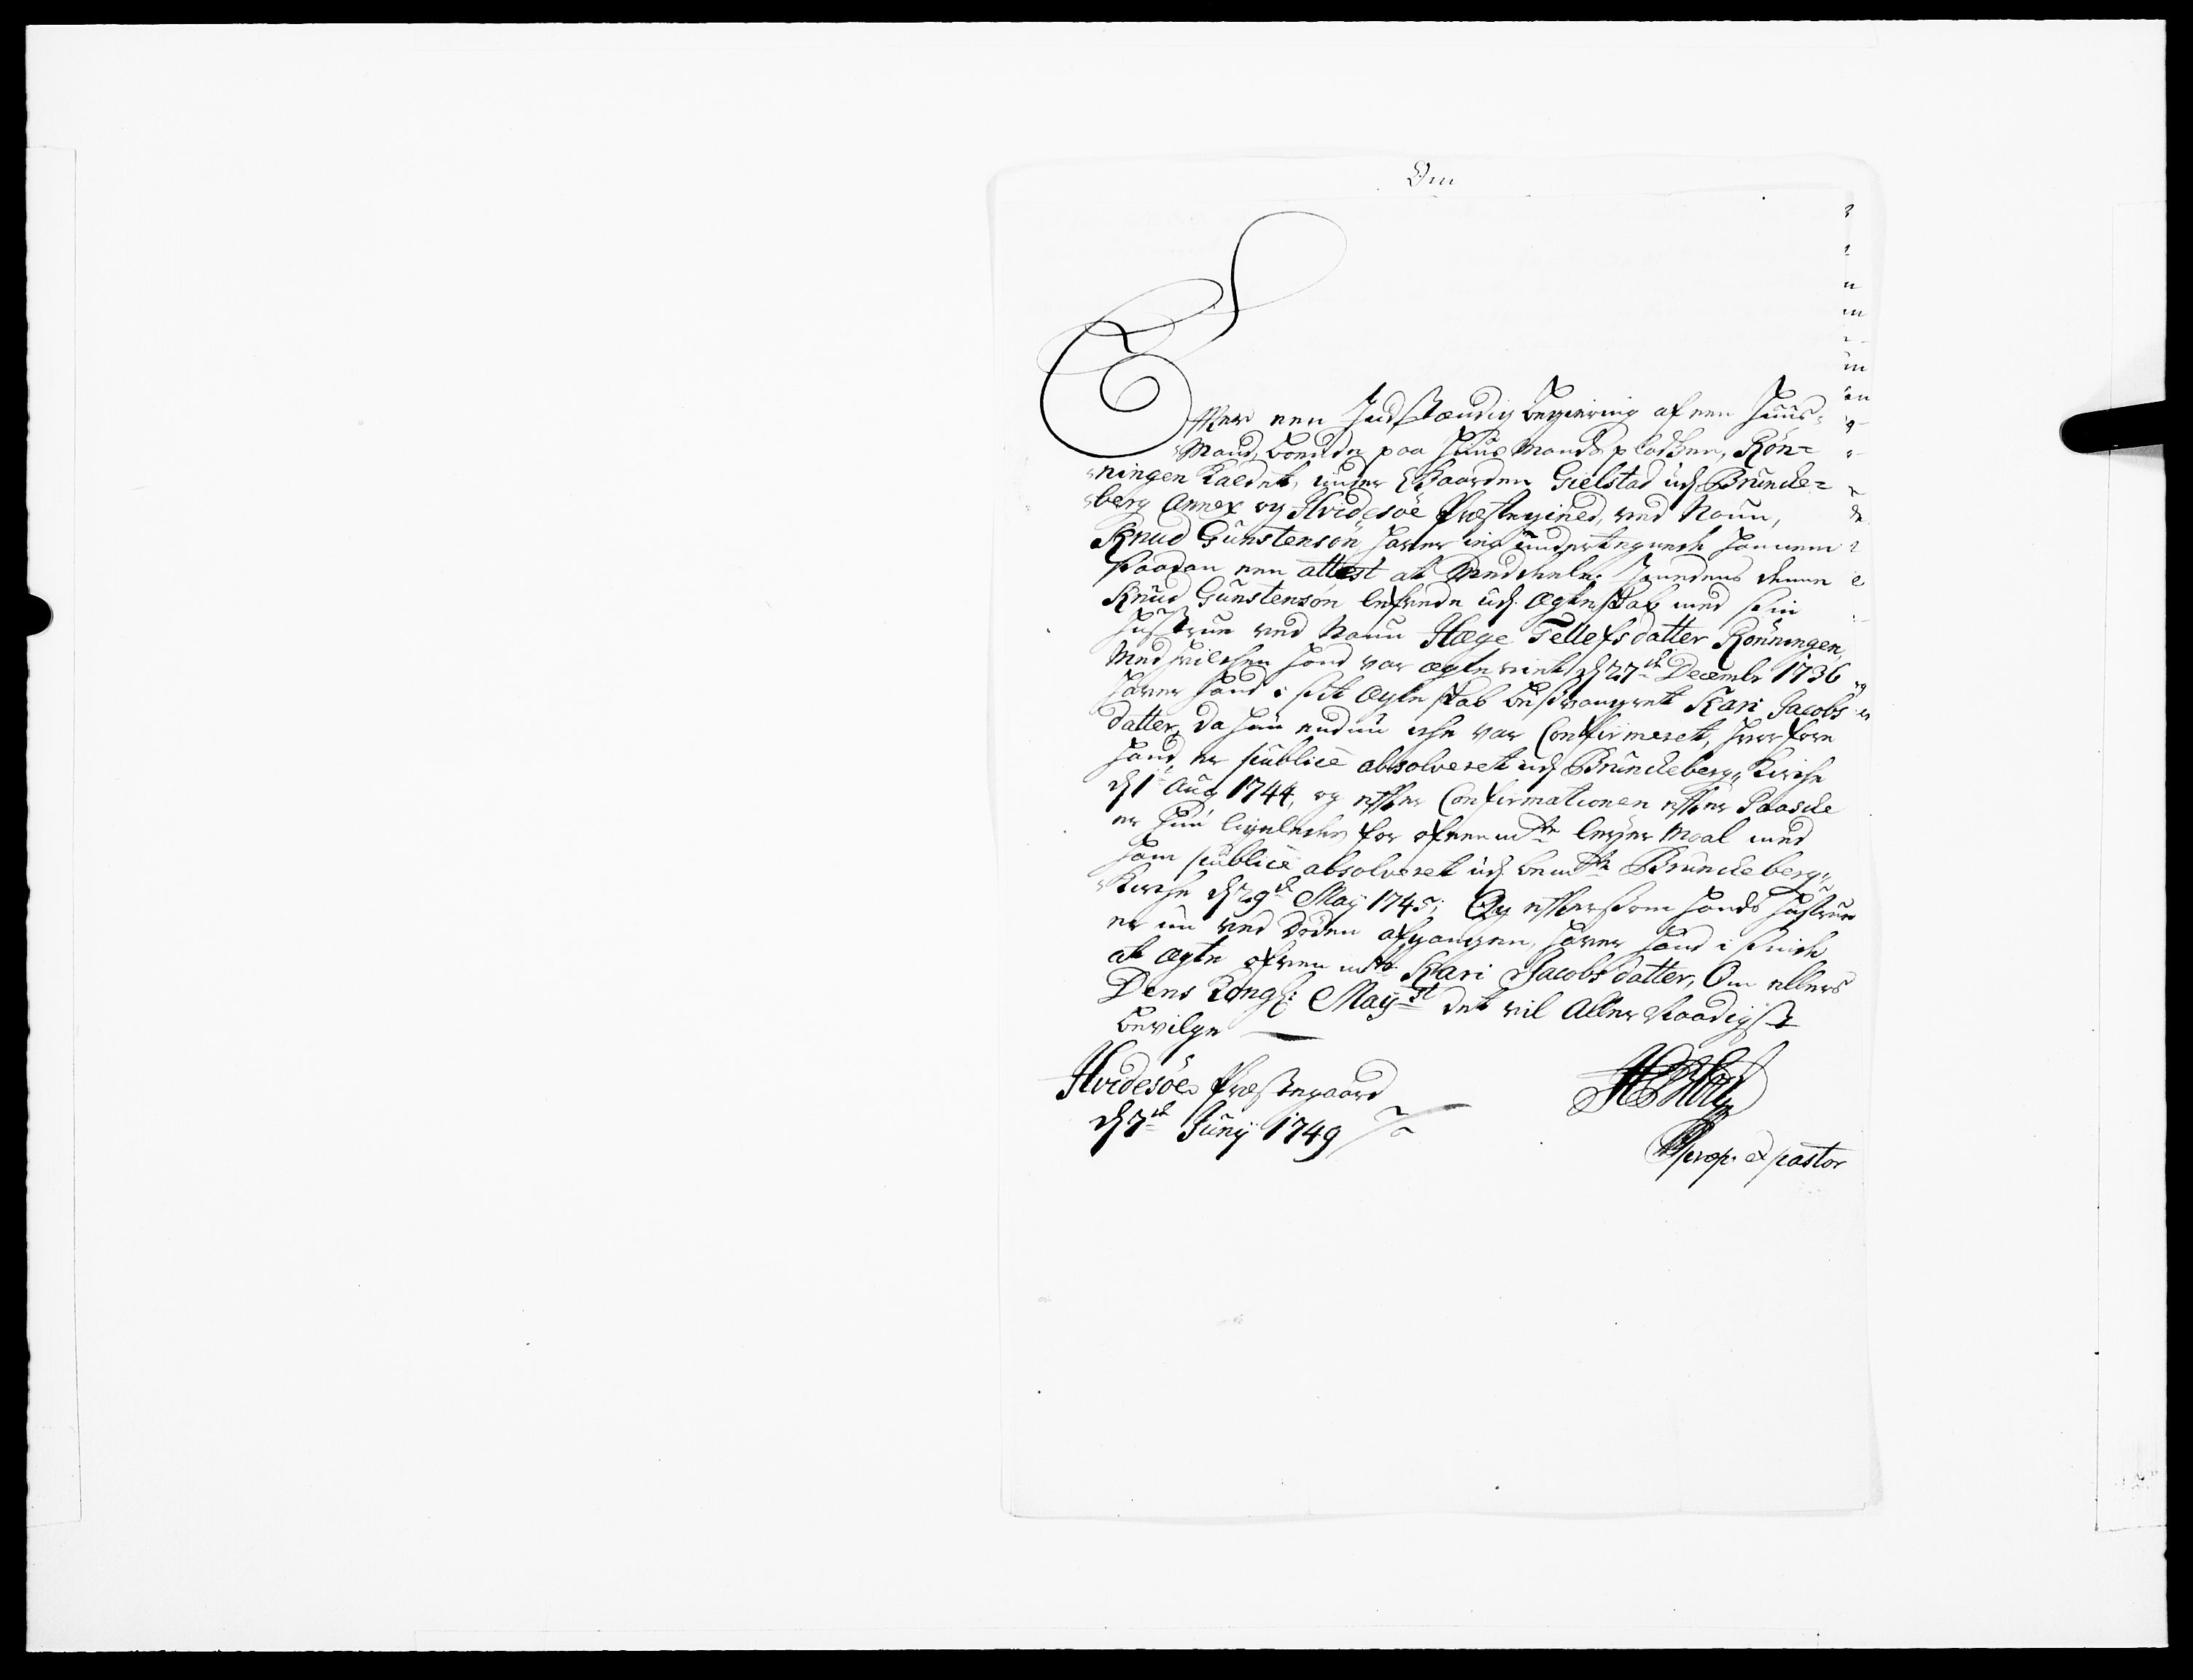 Om
Efter een Indstændig begiering af een Huus-
Mand, boende paa Huusmands pladsen, Rön-
ningen kaldet, under Gaarden Gielstad udj Brunche-
berg Annex og Hvidesöe Præstegield, ved Naun,
Knud Gunstensön, haver ieg undertegnede hannem
saadan een attest at Meddeele. Hvedens denne
Knud Gunstensön lefvede udj Ægteskab med sin
Hustrue ved Naun Hæge Tellefsdatter Rönningen,
Med hvilchen hand var ægteviet d 27de Decembr 1736
haver hand i sit Ægteskab besvangret Kari Jacobs
datter, da hun endnu iche var Confirmeret, hvorfore
hand er publicè absolveret udj Bruncheberg Kirche
d 1te Aug 1744, og efter Confirmationen efter Paaske
er hun ligeledes for ofvenmte leyermaal med
ham publicè absolveret udj bemte Bruncheberg
Kirche d 29de May 1745; Og eftersom hands Hustrue
er nu ved Döden afgangen, haver hand i sinde
at ægte ofvenmte Kari Jacobsdatter, Om ellers
Dens Kongl: Mayst det vil Allernaadigst
bevilge
Hvidesöe Præstegaard
d 7de Junij 1749
præp. et pastor